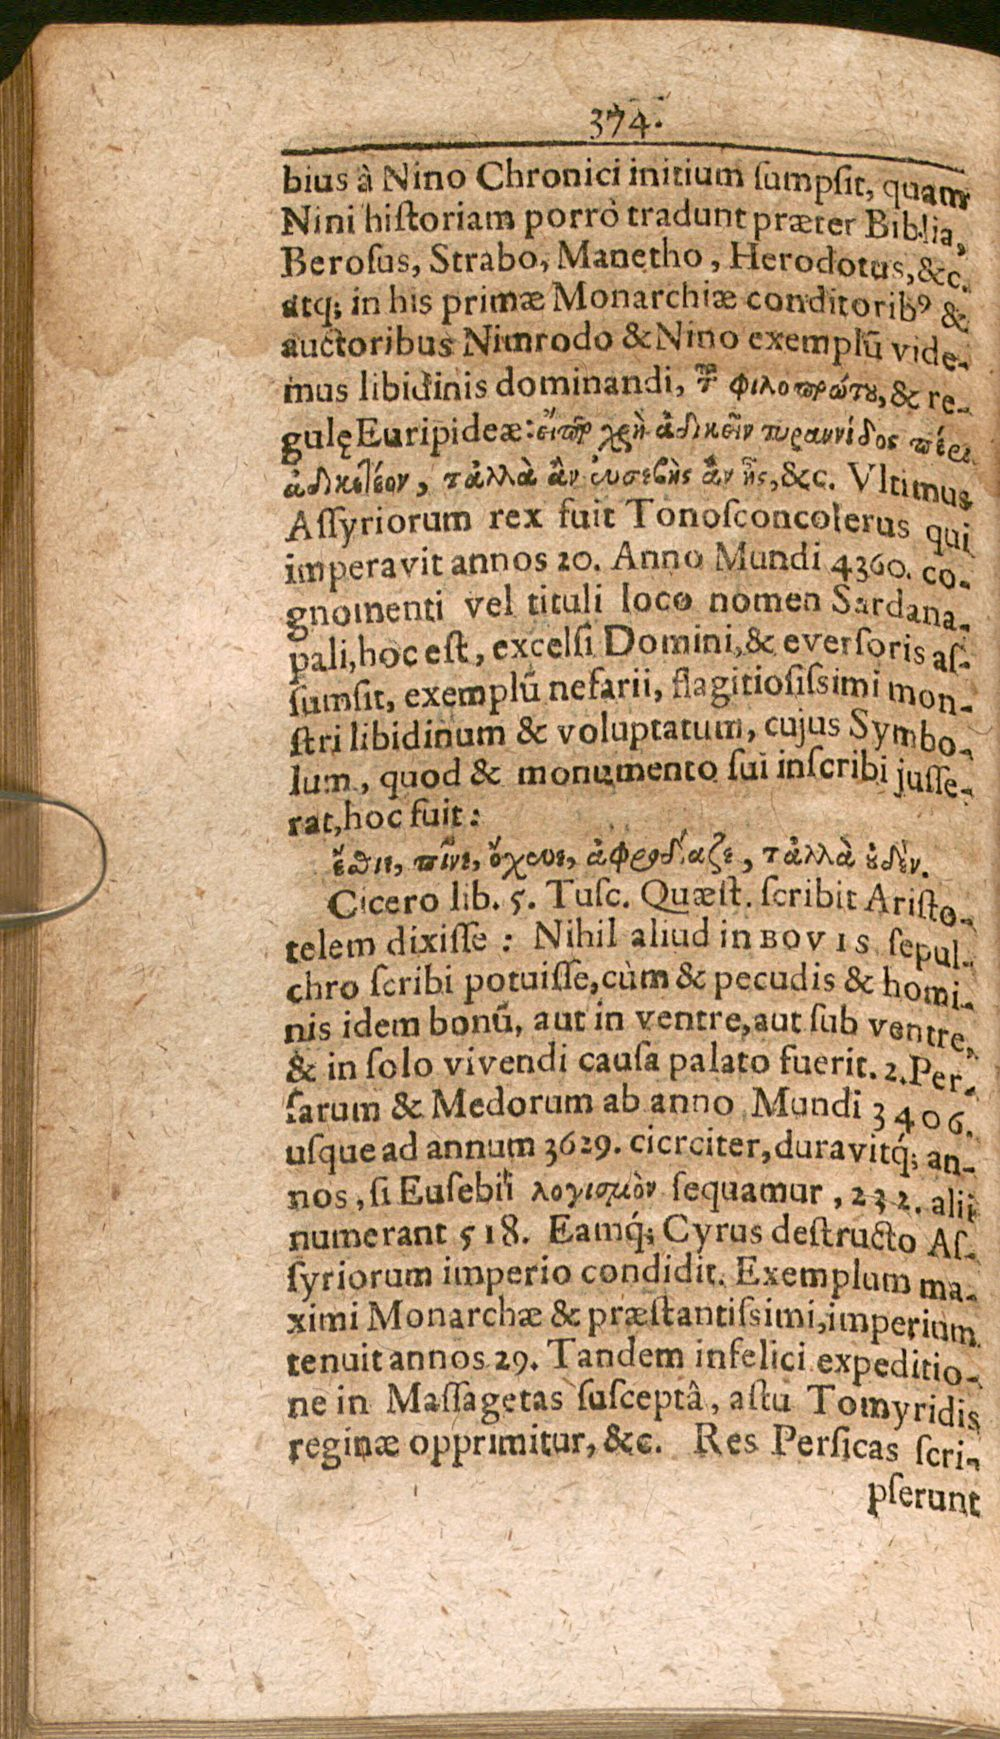 374.
bius à Nino Chronici initium ſumpſit, quam
Nini hiſtoriam porrò tradunt præter Biblia,
Beroſus, Strabo, Manetho, Herodotus, &c.
atq; in his primæ Monarchiæ conditorib⁹ &
auctoribus Nimrodo & Nino exemplū vide-
mus libidinis dominandi, φιλοπρώτου, & re-
gulę Euripideæ: εἴπερ χρὴ ἀδικεῖν τυραννίδος πέρι
ἀδικεῖν, τἀλλὰ ἂν εὐσεβὴς ἂν ἦς, &c. Vltimus
Aſſyriorum rex fuit Tonoſconcolerus qui
imperavit annos 20. Anno Mundi 4360. co-
gnomenti vel tituli loco nomen Sardana-
pali, hoc eſt, excelſi Domini, & everſoris aſ-
ſumſit, exemplū nefarii, flagitioſiſsimi mon-
ſtri libidinum & voluptatum, cujus Symbo-
lum, quod & monumento ſui inſcribi juſſe-
rat, hoc fuit:
ἔσθιε, πῖνε, ὄχευε, ἀφροδίαζε, τἀλλὰ ὐδὲν.
Cicero lib. 5. Tuſc. Quæſt. ſcribit Ariſto-
telem dixiſſe: Nihil aliud in BOVIS ſepul-
chro ſcribi potuiſſe, cùm & pecudis & homi-
nis idem bonū, aut in ventre, aut ſub ventre,
& in ſolo vivendi cauſa palato fuerit. 2. Per-
ſarum & Medorum ab anno Mundi 3406.
uſque ad annum 3629. cicrciter, duravitq́; an-
nos, ſi Euſebii λογισμὸν ſequamur, 232. alii
numerant 518. Eamq́; Cyrus deſtructo Aſ-
ſyriorum imperio condidit. Exemplum ma-
ximi Monarchæ & præſtantiſsimi, imperium
tenuit annos 29. Tandem infelici expeditio-
ne in Maſſagetas ſuſceptâ, aſtu Tomyridis
reginæ opprimitur, &c. Res Perſicas ſcri-
pſerunt